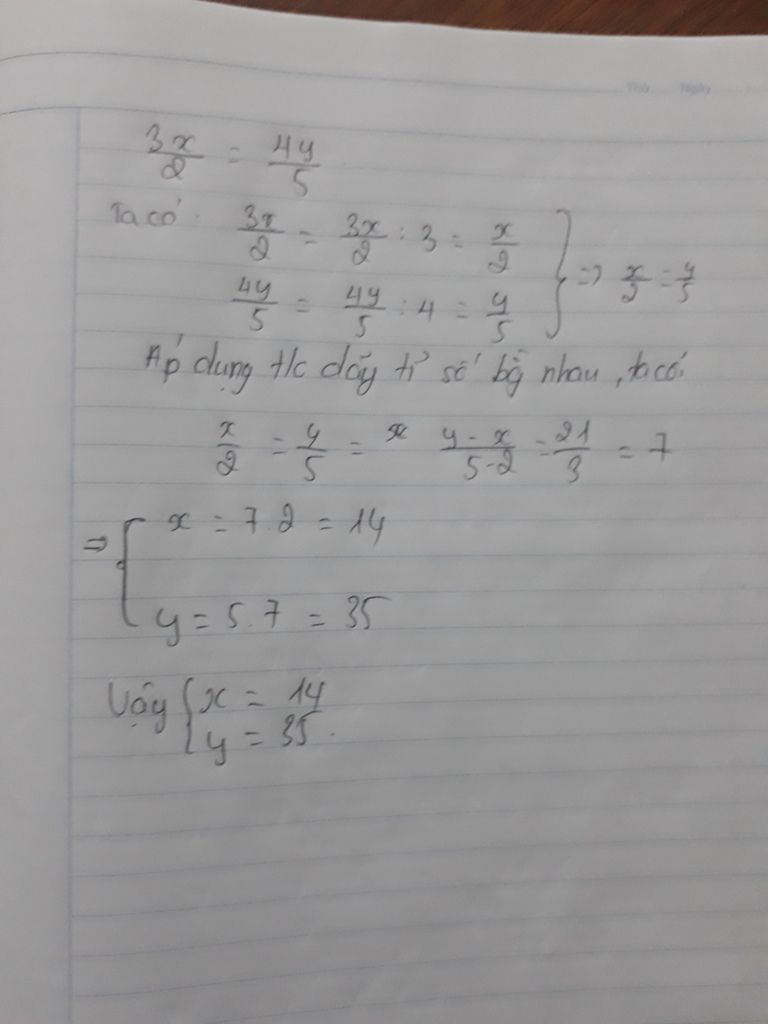 Thứ Ngày
3x/2 = 4y/5
Ta có: 3x/2 = 3x/2 : 3 = x/2
4y/5 = 4y/5 : 4 = y/5 } => x/2 = y/5
Áp dụng t/c dãy tỉ số bằng nhau, ta có:
x/2 = y/5 = x y - x/5-2 = 21/3 = 7
=> { x = 7.2 = 14
y = 5.7 = 35
Vậy { x = 14
y = 35.